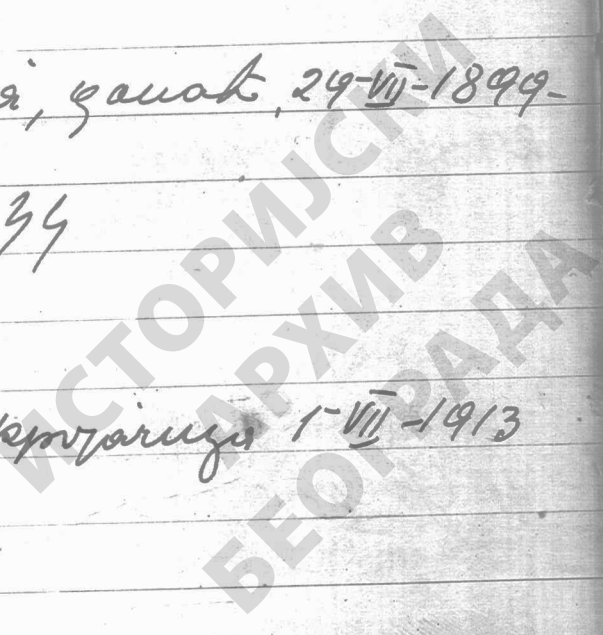 24-VII-1899-
34
кројачица 1-VII-1913
ИСТОРИЈСКИ
АРХИВ
БЕОГРАДА